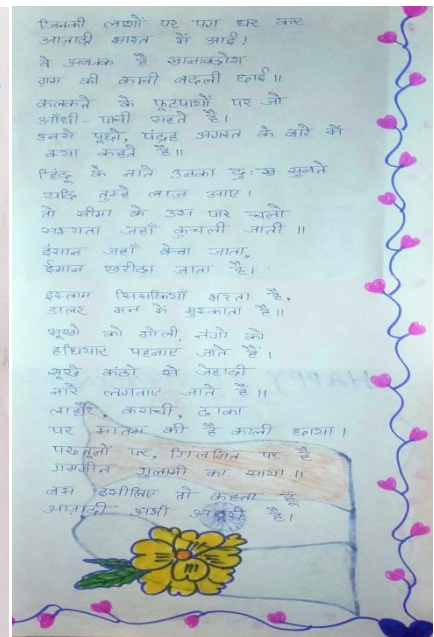 जिनकी लाशों पर पग धर कर
आजादी भारत में आई।
वे अबतक हैं खानाबदोश
ग़म की काली बदली छाई॥
कलकत्ते के फुटपाथों पर जो
आँधी-पानी सहते हैं।
उनसे पूछो, पंद्रह अगस्त के बारे में
क्या कहते हैं॥
हिंदू के नाते उनका दुःख सुनते
यदि तुम्हे लाज आए।
तो सीमा के उस पार चलो
सभ्यता जहाँ कुचली जाती॥
इंसान जहाँ बेचा जाता,
ईमान खरीदा जाता है।
इस्लाम सिसकियाँ भरता है,
डालर मन में मुस्काता है॥
भूखों को गोली, नंगों को
हथियार पहनाए जाते हैं।
सूखे कंठों से जेहादी
नारे लगवाए जाते हैं॥
लाहौर, कराची, ढाका
पर मातम की है काली छाया।
पख्तूनों पर, गिलगित पर है
गमगीन गुलामी का साया॥
बस इसीलिए तो कहता हूँ
आजादी अभी अधूरी है।
HAPPY